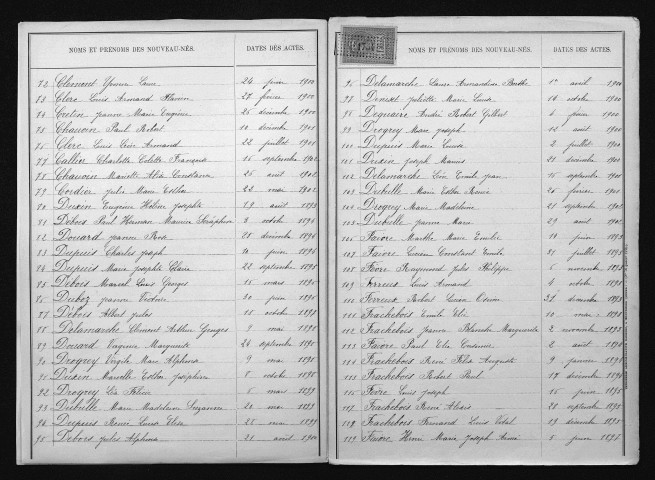 NOMS ET PRENOMS DES NOUVEAU-NÉS. DATES DES ACTES.
72 Clement Yvonne 24 juin 1900
73 Clerc Louis Armand Flavien 27 février 1900
74 Cretin Jeanne Marie Eugénie 25 décembre 1900
75 Chauvin Paul Robert 10 décembre 1900
76 Clerc Louis Léon Armand 22 juillet 1900
77 Cattier Charlotte Colette Françoise 16 septembre 1902
78 Chauvin Marcelle Alice Constance 25 août 1902
79 Cordier Jules Marie 22 mai 1902
80 Duxin Eugénie Hélène Josèphe 19 août 1893
81 Débois Paul Herman Maurice Séraphin 8 octobre 1894
82 Douard Jeanne Rose 28 décembre 1894
83 Dupuis Charles Joseph 10 juin 1896
84 Dupuis Marie Josèphe Claire 22 septembre 1895
85 Débois Marcel Louis Georges 15 mars 1896
86 Duboz Jeanne 30 juin 1896
87 Débois Albert Jules 11 octobre 1897
88 Delamarche Clément Arthur Georges 9 mai 1898
89 Douard Virginie Marguerite 24 septembre 1898
90 Drogrey Virgile Marie Alphonse 9 mai 1898
91 Duxin Marcelle Esther Joséphine 8 octobre 1898
92 Drogrey Léa 8 mars 1899
93 Dubrulle Marie Madeleine Suzanne 20 mai 1899
94 Dupuis Renée Louise Elise 28 mai 1899
95 Debois Jules Alphonse 21 août 1900
NOMS ET PRÉNOMS DES NOUVEAU-NÉS. DATES DES ACTES.
96 Delamarche Louise Armandine Berthe 1er avril 1900
97 Denizet Juliette Marie Louise 16 octobre 1900
98 Deguaire André Robert Gilbert 6 juin 1900
99 Drogrey Marie Joseph 12 août 1900
100 Dupuis Marie Louise 2 juillet 1900
101 Duxin Joseph Marius 21 décembre 1900
102 Delamarche Léon Emile Jean 15 septembre 1900
103 Dubrulle Marie Esther Renée 26 février 1900
104 Drogrey Marie Madeleine 21 septembre 1902
105 Dubulle Jeanne Marie 29 août 1902
106 Faivre Marthe Marie Emilie 11 juin 1893
107 Faivre Lucien Constant Emile 31 juillet 1893
108 Faivre Raymond Jules Philippe 5 novembre 1893
109 Ferreux Louis Armand 4 octobre 1893
110 Ferreux Robert Lucien 31 décembre 1893
111 Frachebois Emile Eloi 10 mai
112 Frachebois Jeanne Blanche Marguerite 2 novembre 1893
113 Faivre Paul Elie 2 août 1894
114 Frachebois René Félix Auguste 9 janvier 1894
115 Frachebois Robert Paul 17 décembre 1894
116 Faivre Louis Joseph 16 juin 1895
117 Frachebois René Alexis 28 septembre 1895
118 Frachebois Fernand Louis Vital 19 décembre 1895
119 Faivre Henri Marie Joseph Aimé 5 juin 1897